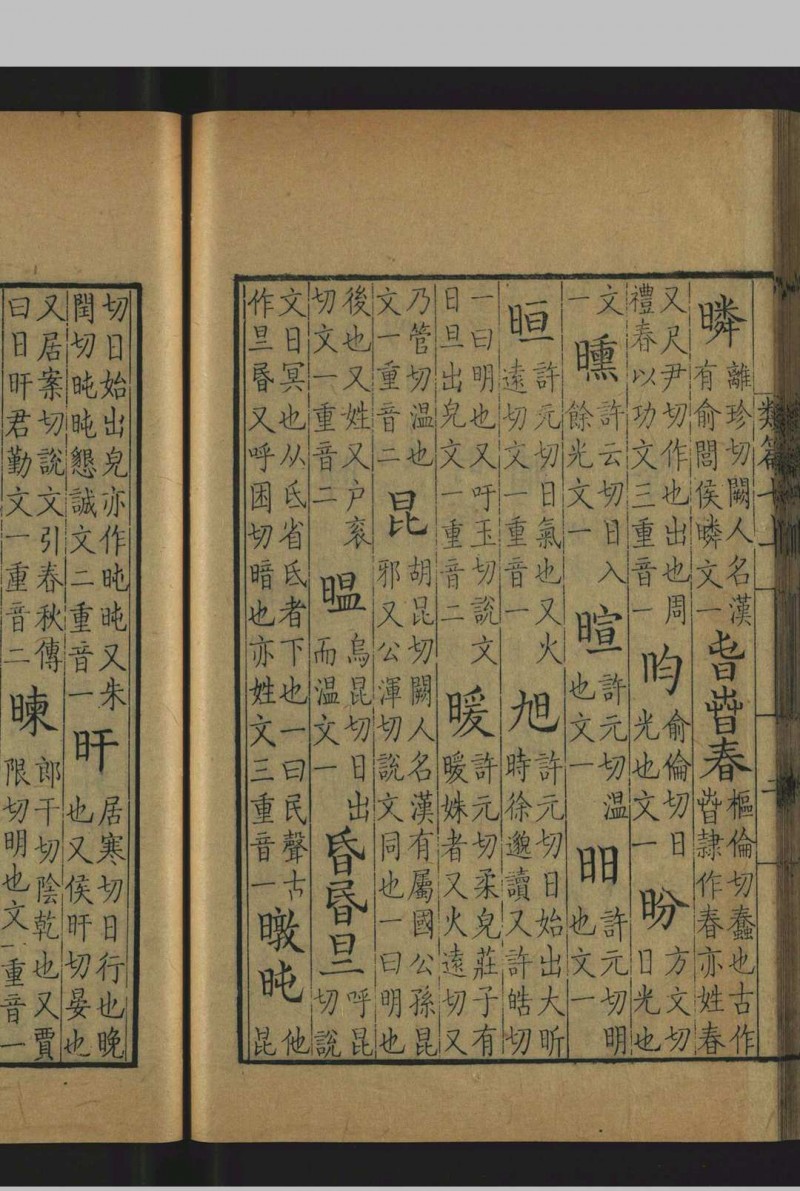 暽離珍切闕人名漢有俞閭侯暽文一旾萅春樞倫切蠢也古作萅隷作春亦姓春
又尺尹切作也出也周禮春以功文三重音一昀俞倫切日光也文一昐方文切日光也
文一曛許云切日入餘光文一暄許元切温也文一昍許元切明也文一
晅許元切日氣也又火遠切文一重音一旭許元切日始出大昕時徐邈讀又許皓切
一曰明也又吁玉切說文日旦出皃文一重音二暖許元切柔皃莊子有暖姝者又火遠切又
乃管切温也文一重音二昆胡昆切闕人名漢有屬國公孫昆邪又公渾切說文同也一曰明也
後也又姓又戶衮切文一重音二㬈烏昆切日出而温文一昏昬旦呼昆切說
文日冥也从氐省氐者下也一曰民聲古作旦昬又呼困切暗也亦姓文三重音一暾旽他昆
切日始出皃亦作旽旽又朱閏切旽旽懇誠文二重音一旰居寒切日行也晚也又侯旰切晏也
又居案切說文引春秋傳曰日旰君勤文一重音二暕郎干切陰乾也又賈限切明也文一重音一
類篇